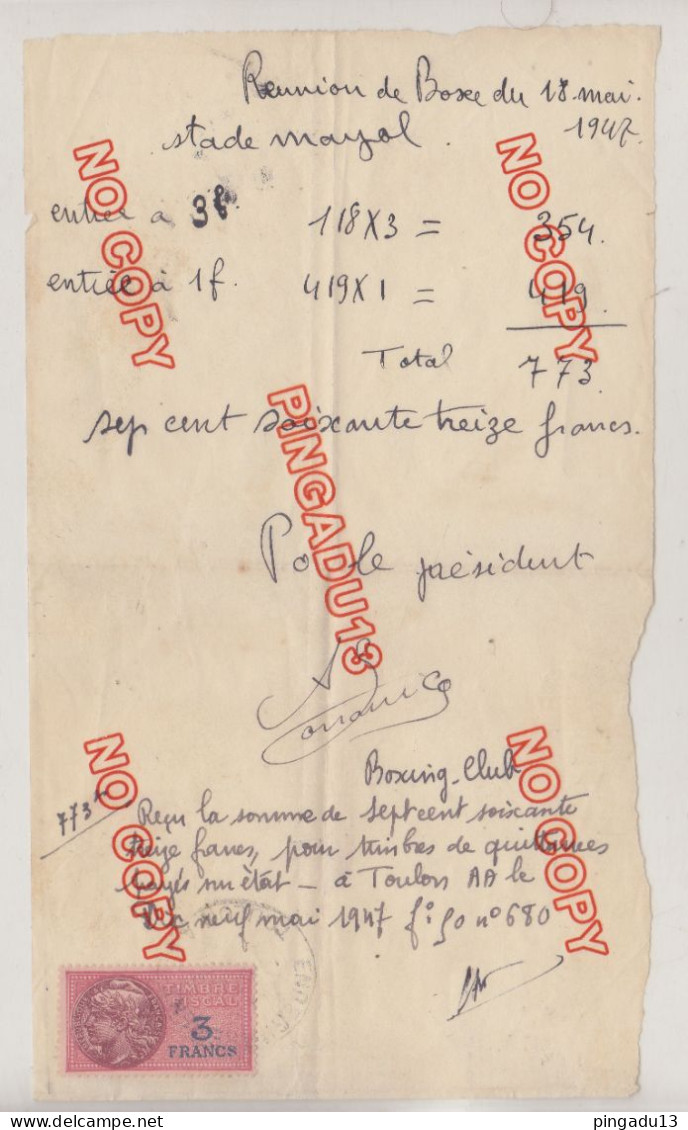 Reunion de Boxe du 18 mai.
1947.
stade mayol.
entrée a 3f 118X3 = 354.
entrée à 1f. 419X1 = 419.
Total 773
sep cent soixante treize francs.
Po le président
Boxing-Club
773
Reçu la somme de sept cent soixante
treize francs, pour timbres de quittances
payés sur état - à Toulon AA le
Dix neuf mai 1947 f° 90 n° 680
TIMBRE
FISCAL
3
FRANCS
NO COPY
NO COPY
PINGADU13
NO COPY
NO COPY
pingadu13